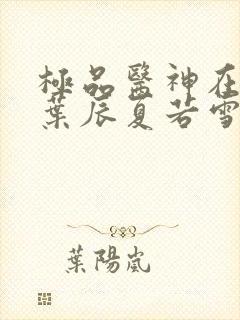 極品醫神在
葉辰夏若雪
葉陽嵐